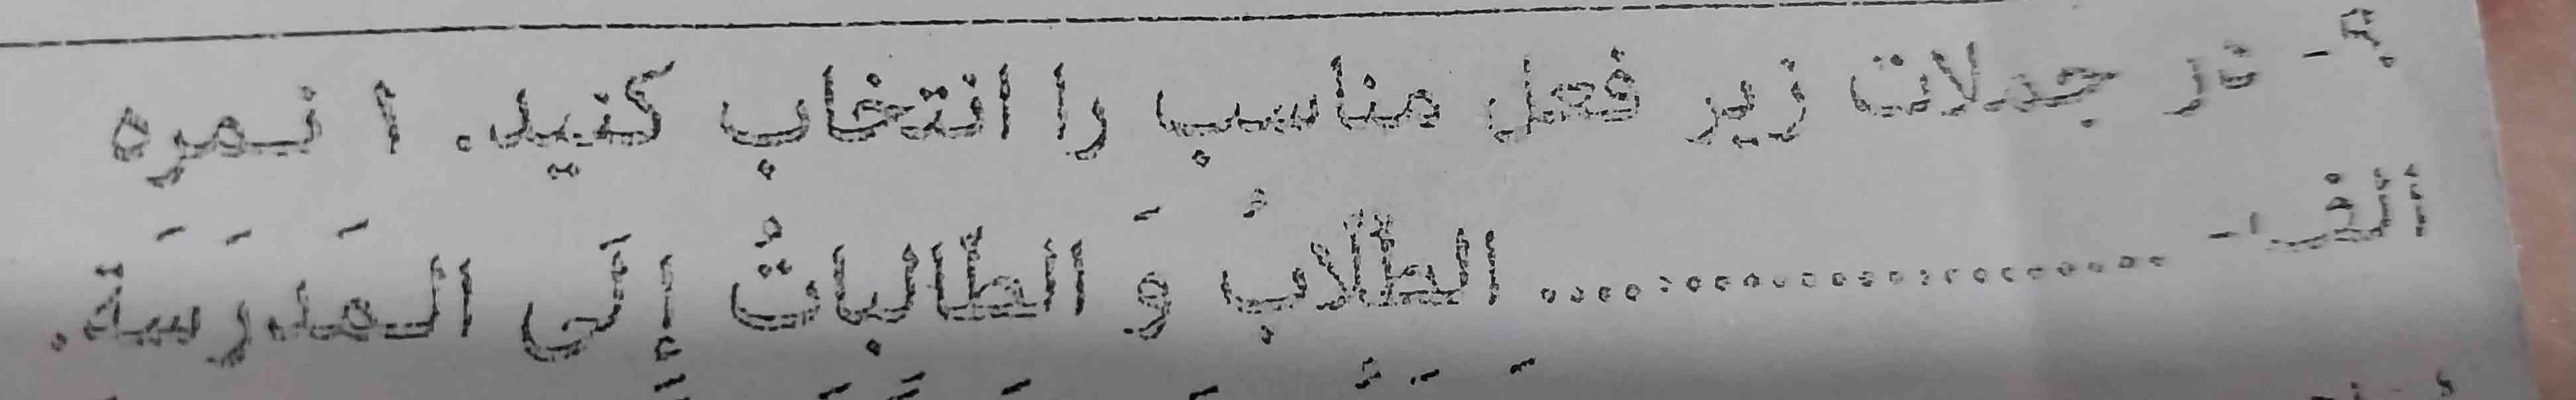 ۹- در جملات زیر فعل مناسب را انتخاب کنید. ۱ نمره
الف- .......................... الطُّلّابُ وَ الطّالِباتُ إلَی المَدرَسَةَ.